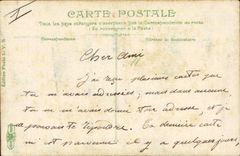 I
CARTE POSTALE
Tous les pays étrangers n'acceptent pas la Correspondance au recto
(Se renseigner à la Poste)
Cher Ami
J'ai reçu plusieurs cartes que
tu m'avais adressées, mais dans aucune
tu m'avais donné ton adresse, et je
pouvais te répondre. Ta dernière carte
m'est parvenue il y a quelques jours